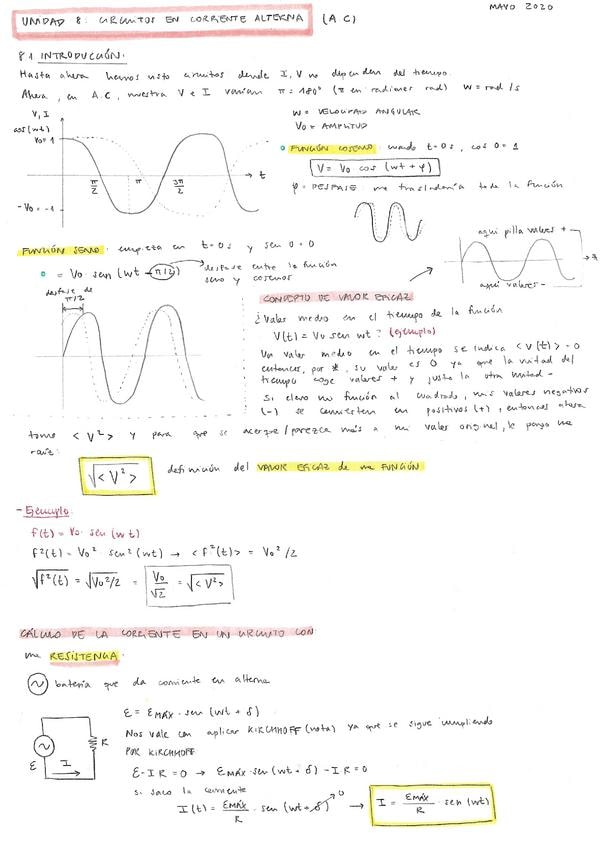 MAYO 2020
UNIDAD 8: CIRCUITOS EN CORRIENTE ALTERNA (A.C)
8.1 INTRODUCCIÓN.
Hasta ahora hemos visto circuitos donde I, V no dependen del tiempo.
Ahora, en A.C, nuestra V e I varían π = 180° (π en radianes rad) w = rad/s
V, I
cos(wt)
V0 = 1
-V0 = -1
π/2
π
3π/2
t
w = VELOCIDAD ANGULAR
V0 = AMPLITUD
FUNCIÓN COSENO: cuando t=0s, cos 0 = 1
V = V0 cos (wt + φ)
φ = DESFASE me trasladaría toda la función
FUNCIÓN SENO: empieza en t=0s y sen 0 = 0
= V0 sen (wt - π/2)
desfase entre la función
seno y coseno
desfase de
π/2
aquí pilla valores +
aquí valores -
*
CONCEPTO DE VALOR EFICAZ
¿Valor medio en el tiempo de la función
V(t) = V0 sen wt? (ejemplo)
Un valor medio en el tiempo se indica <V(t)> = 0
entonces, por *, su valor es 0 ya que la mitad del
tiempo coge valores + y justo la otra mitad -
Si elevo mi función al cuadrado, mis valores negativos
(-) se convierten en positivos (+), entonces ahora
tomo <V²> y para que se acerque/parezca más a mi valor original, le pongo una
raíz:
√<V²> definición del VALOR EFICAZ de una FUNCIÓN
- Ejemplo:
f(t) = V0 · sen (wt)
f²(t) = V0² sen² (wt) → <f²(t)> = V0²/2
√f²(t) = √V0²/2 = V0/√2 = √<V²>
CÁLCULO DE LA CORRIENTE EN UN CIRCUITO CON
una RESISTENCIA.
batería que da corriente en alterna
ε
I
R
ε = εMÁX · sen (wt + δ)
Nos vale con aplicar KIRCHHOFF (nota) ya que se sigue cumpliendo
POR KIRCHHOFF
ε - IR = 0 → εMÁX · sen (wt + δ) - IR = 0
si saco la corriente
I(t) = εMÁX/R · sen (wt + δ) 0 → I = εMÁX/R · sen (wt)